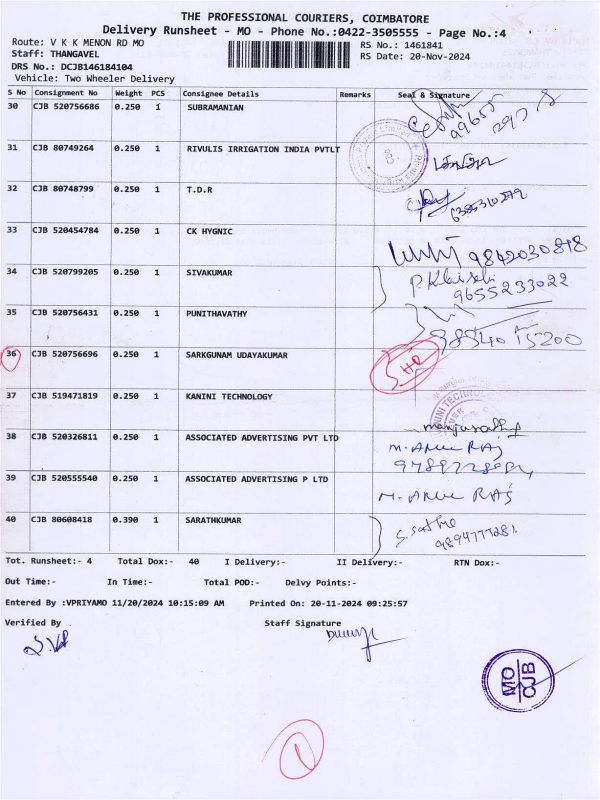 THE PROFESSIONAL COURIERS, COIMBATORE
Delivery Runsheet - MO - Phone No.:0422-3505555 - Page No.:4
Route: V K K MENON RD MO
RS No.: 1461841
Staff: THANGAVEL
RS Date: 20-Nov-2024
DRS No.: DCJB146184104
Vehicle: Two Wheeler Delivery
S No Consignment No Weight PCS Consignee Details Remarks Seal & Signature
30 CJB 520756686 0.250 1 SUBRAMANIAN
31 CJB 80749264 0.250 1 RIVULIS IRRIGATION INDIA PVTLT
32 CJB 80748799 0.250 1 T.D.R
33 CJB 520454784 0.250 1 CK HYGNIC
9842030878
34 CJB 520799205 0.250 1 SIVAKUMAR
9655233022
35 CJB 520756431 0.250 1 PUNITHAVATHY
36 CJB 520756696 0.250 1 SARKGUNAM UDAYAKUMAR
37 CJB 519471819 0.250 1 KANINI TECHNOLOGY
38 CJB 520326811 0.250 1 ASSOCIATED ADVERTISING PVT LTD M. ARUL RAJ
39 CJB 520555540 0.250 1 ASSOCIATED ADVERTISING P LTD M. ARUL RAJ
40 CJB 80608418 0.390 1 SARATHKUMAR
9894777281
Tot. Runsheet:- 4 Total Dox:- 40 I Delivery:- II Delivery:- RTN Dox:-
Out Time:- In Time:- Total POD:- Delvy Points:-
Entered By :VPRIYAMO 11/20/2024 10:15:09 AM Printed On: 20-11-2024 09:25:57
Verified By Staff Signature
MO
CJB
1